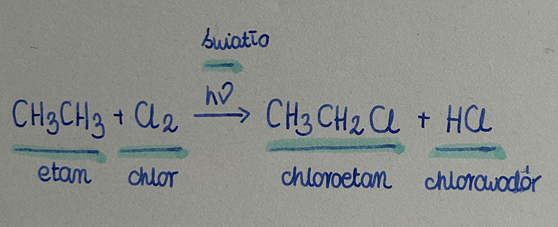 światło
hν
CH₃CH₃ + Cl₂ → CH₃CH₂Cl + HCl
etan chlor chloroetan chlorowodór